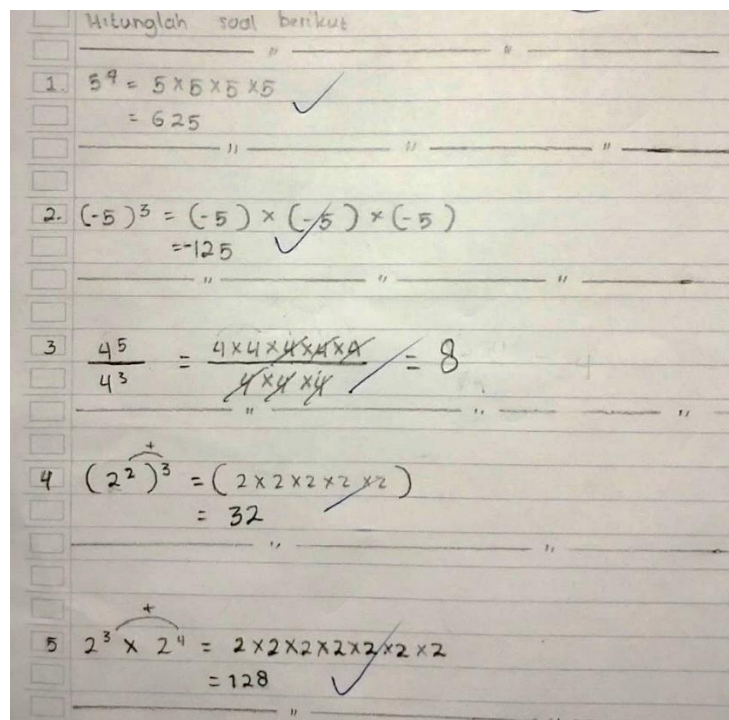 Hitunglah soal berikut
1. 5⁴ = 5 × 5 × 5 × 5
= 625
2. (-5)³ = (-5) × (-5) × (-5)
= -125
3 4⁵/4³ = 4×4×4×4×4/4×4×4 = 8
+
4 (2²)³ = (2×2×2×2×2)
= 32
+
5 2³ × 2⁴ = 2×2×2×2×2×2×2
= 128